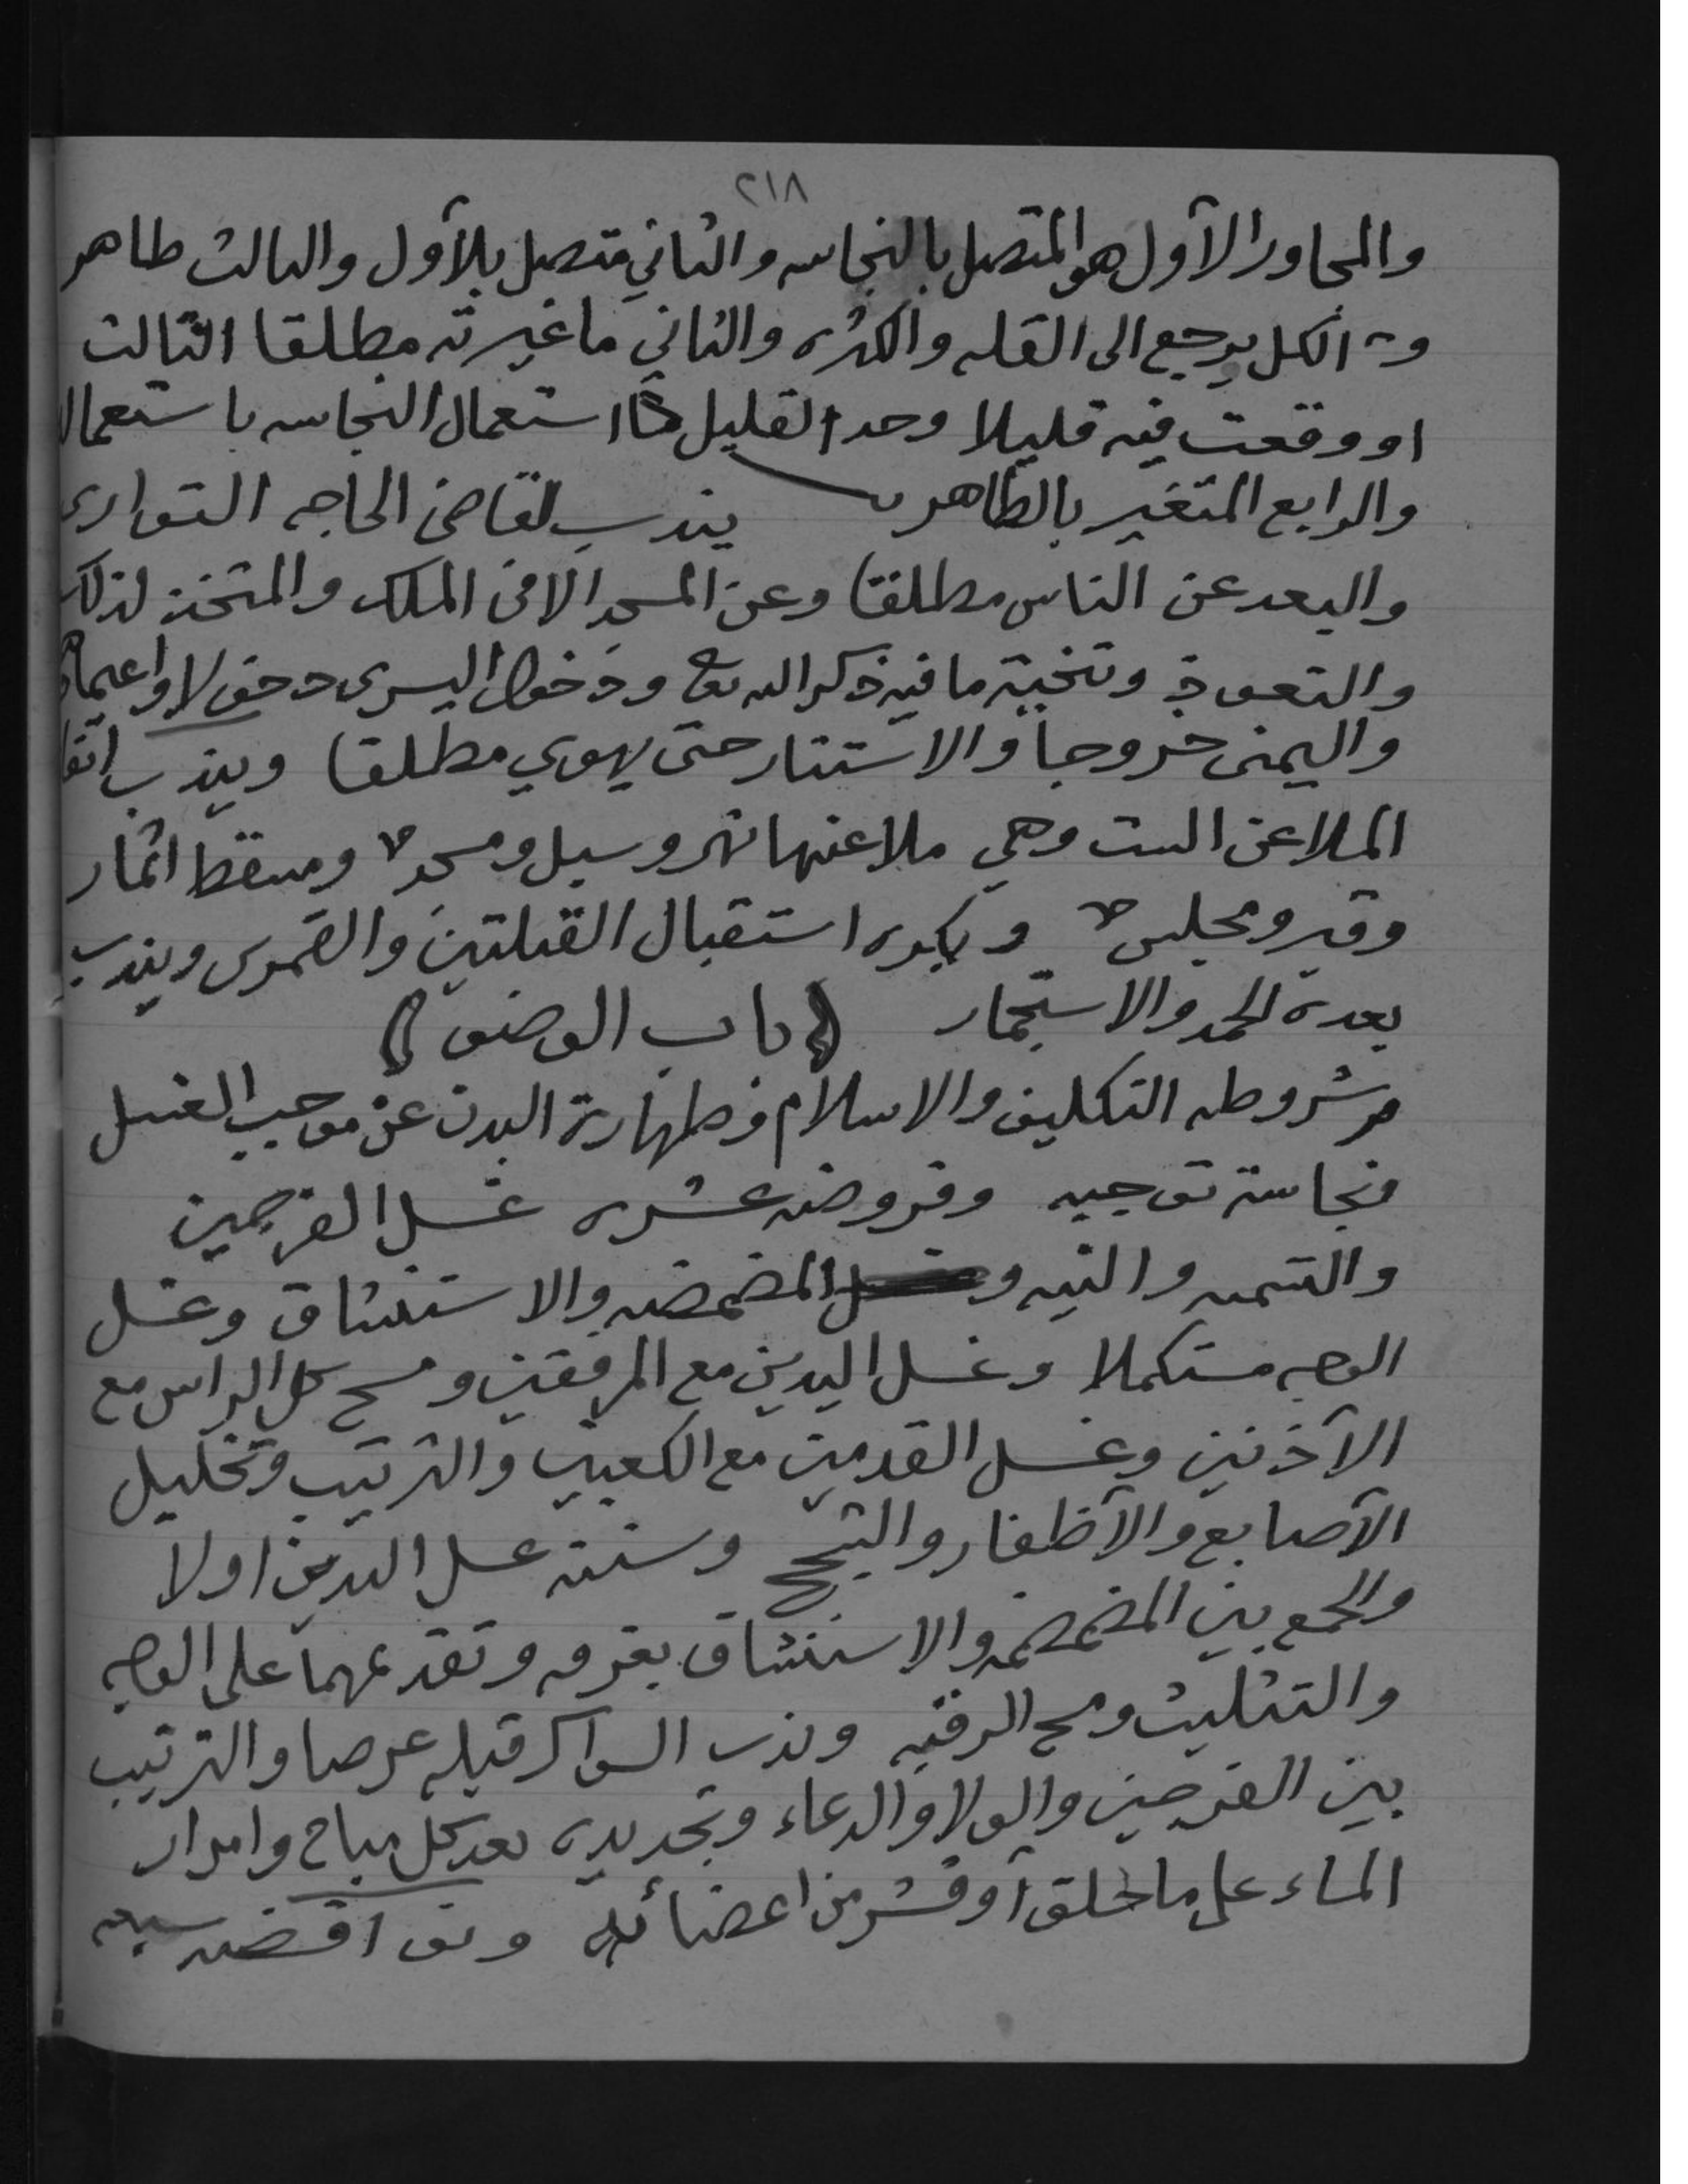 ٢١٨
والمجاور الأول هو المتصل بالنجاسه والثاني متصل بلأول والثالث طاهر
الكل يرجع الى القله والكثره والثاني ما غيرته مطلقا الثالث
او وقعت فيه قليلا وحد القليل استعمال النجاسه باستعمال
والرابع المتغير بالطاهر يندب لقاضي الحاجه التواري
والبعد عن الناس مطلقا وعن المسجد الا في الملك والمتخذ لذلك
والتعوذ وتنحية ما فيه ذكر الله تع ودخول اليسرى دخولا واعتماد
واليمنى خروجا والاستتار حتى يهوي مطلقا ويندب اتقا
الملاعن الست وهي ملاعنها نهر وسبل ومسجد ومسقط اثمار
وقبر ومجلس ويكره استقبال القبلتين والقمرين ويندب
بعده الحمد والاستجمار ﴿ باب الوضو ﴾
شروطه التكليف والاسلام وطهارة البدن عن موجب الغسل
ونجاسة توجبه وفروضه عشره غسل الفرجين
والتسميه والنيه والمضمضه والاستنشاق وغسل
الوجه مستكملا وغسل اليدين مع المرفقين ومسح كل الراس مع
الأذنين وغسل القدمين مع الكعبين والترتيب وتخليل
الأصابع والأظفار والشجج وسننه غسل اليدين اولا
والجمع بين المضمضه والاستنشاق بغرفه وتقديمهما على الوجه
والتثليث ومسح الرقبه وندب السواك قبله عرضا والترتيب
بين الفرجين والولا والدعاء وتجديده بعد كل مباح وامرار
الماء على ما حلق أو قشر من اعضائه ونواقضه سبعه